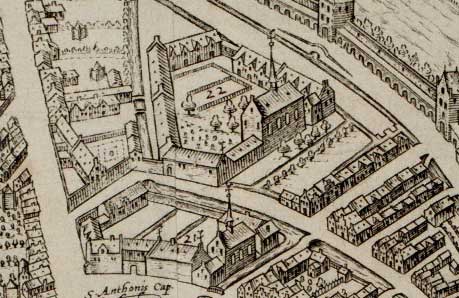 22
S. Anthonij Cap.